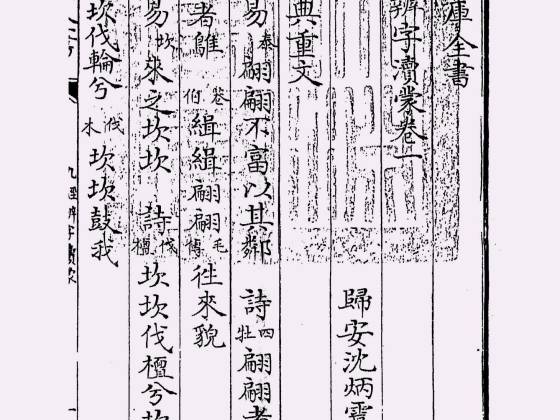 庫全書
辨字瀆蒙卷一
歸安沈炳
典重文
易泰翩翩不富以其鄰 詩四牡翩翩者
者鵻巷伯緝緝翩翩毛傳往來貌
易坎來之坎坎 詩伐檀坎坎伐檀兮坎
坎伐輪兮伐木坎坎鼓我
九經辨字瀆蒙